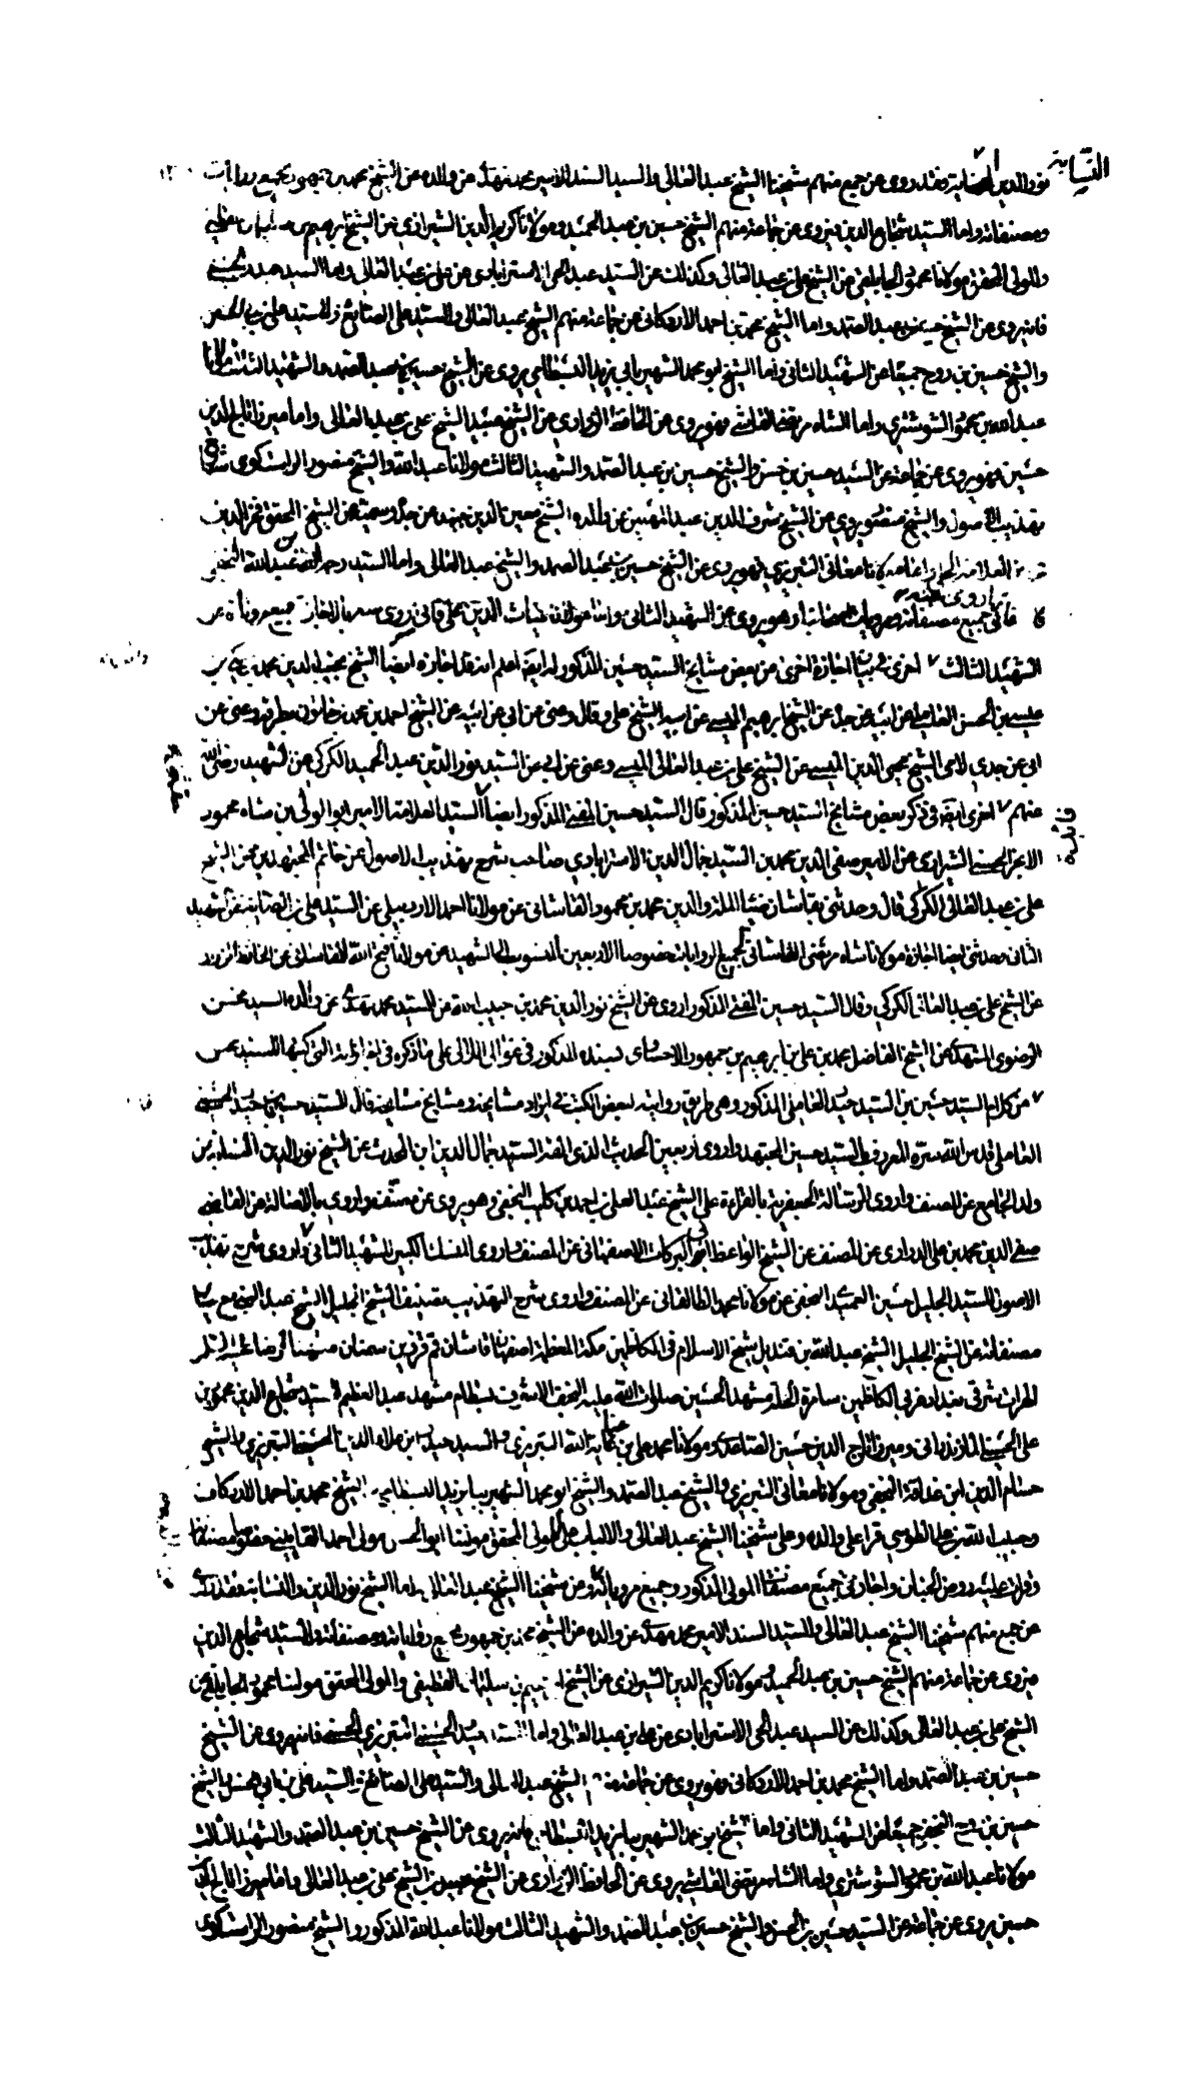 النسابة
نور الدين النسابة فقد روى عن جمع منهم شيخنا الشيخ عبد العالي والسيد السند الامير محمد مهدي عن والده عن الشيخ محمد بن جمهور بجميع روايات
ومصنفاته واما السيد شجاع الدين فيروى عن جماعة منهم الشيخ حسين بن عبد الحميد ومولانا كريم الدين الشيرازي عن الشيخ ابرهيم بن سليمان
والمولى المحقق مولانا محمود الجابلقي عن الشيخ علي بن عبد العالي وكذلك عن السيد عبد الحي الاسترابادي عن علي بن عبد العالي واما السيد حيدر الحسيني
فانه يروى عن الشيخ حسين بن عبد الصمد واما الشيخ محمد بن احمد الاردكاني عن جماعة منهم الشيخ عبد العالي والسيد علي الصايغ والسيد علي بن ابي الحسن
والشيخ حسين بن روح جميعا عن الشهيد الثاني واما الشيخ ابو محمد الشهير بابي يزيد البسطامي يروى عن الشيخ حسين بن عبد الصمد والشهيد الثالث مولانا
عبد الله بن محمود الشوشتري واما الشاه مرتضى القاساني فهو يروى عن الحافظ الزواري عن الشيخ علي بن عبد العالي واما ميرزا تاج الدين
حسين فهو يروى عن جماعة عن السيد حسين بن حسن والشيخ حسين بن عبد الصمد والشهيد الثالث مولانا عبد الله والشيخ منصور الراستكوى شارح
تهذيب الاصول والشيخ منصور يروي عن الشيخ شرف الدين عبد المهيمن عن والده الشيخ معين الدين جنيد عن جده عن الشيخ المحقق فخر الدين
العلامة الحلي واما مولانا معاني التبريزي فهو يروى عن الشيخ حسين بن عبد الصمد والشيخ عبد العالي واما السيد رحمة الله بن عبد الله النجفي
فاني اروى عنه جميع مصنفاته ومرويات وهو يروى عن الشهيد الثاني واما مولانا غياث الدين علي فاني روى جميع مروياته عن
الشهيد الثالث اخرى في بيان اجازة اخرى من بعض مشايخ السيد حسين المذكور له ايضا اعلم انه قد اجازه ايضا الشيخ نجيب الدين محمد بن مكي بن
عيسى بن الحسن العاملي عن ابيه عن جده عن الشيخ ابرهيم الميسي عن ابيه الشيخ علي وقال وعن ابي عن ابيه عن الشيخ احمد بن محمد بن خاتون بطرقه وعني عن
ابي عن جدي لامي الشيخ محيي الدين الميسي عن الشيخ علي بن عبد العالي الميسي وعني عن ابي عن السيد نور الدين عبد الحميد الكركي عن الشهيد رضي الله
عنهم اخرى ايضا في ذكر بعض مشايخ السيد حسين المذكور قال السيد حسين المفتي المذكور ايضا السيد العلامة الامير ابو الولي بن شاه محمود
فائدة
الحسيني الشيرازي عن الامير صفي الدين محمد بن السيد جمال الدين الاسترابادي صاحب شرح تهذيب الاصول عن خاتم المجتهدين عن الشيخ
علي بن عبد العالي الكركي قال وحدثني بقاشان ضياء الملة والدين محمد بن محمود القاشاني عن مولانا احمد الاردبيلي عن السيد علي بن الصايغ عن الشهيد
الثاني وحدثني ايضا اجازة مولانا شاه مرتضى القاشاني بجميع الروايات خصوصا الاربعين المنسوب الى الشهيد عن مولانا فتح الله القاساني عن الحافظ الزواري
عن الشيخ علي بن عبد العالي الكركي وقال السيد حسين المفتي المذكور اروى عن الشيخ نور الدين محمد بن حبيب الله عن السيد محمد مهدي عن والده السيد محسن
الرضوي المشهدي عن الشيخ الفاضل محمد بن علي بن ابرهيم بن جمهور الاحساوى بسنده المذكور في غوالي اللآلي على ما ذكره في اجازاته التي كتبها للسيد محسن
من كلام السيد حسين بن السيد حيدر العاملي المذكور وهي طريق روايته لبعض الكتب في ايراد مشايخه ومشايخ مشايخه قال السيد حسين بن حيدر الحسيني
العاملي قدس الله سره المعروف بالسيد حسين المجتهد واروى اربعين الحديث الذي الفه السيد جمال الدين ابن المحدث عن الشيخ نور الدين النسابة بن
ولد الجامع عن المصنف واروى الرسالة الجعفرية بالقراءة على الشيخ عبد العلي بن احمد بن كليب النجفي وهو يروى عن مصنفه واروي بالاصالة عن القاضي
صفي الدين محمد بن علي الدوادى عن المصنف عن الشيخ الواعظ ابي البركات الاصفهاني عن المصنف واروى المنسك الكبير للشهيد الثاني واروى شرح تهذيب
الاصول للسيد الجليل حسين العميدي النجفي عن مولانا محمد الطالقاني عن المصنف واروى شرح التهذيب تصنيف الشيخ الجليل الشيخ عبد النبي مع سائر
مصنفاته عن الشيخ الجليل الشيخ عبد الله بن قنديل شيخ الاسلام في الكاظمين مكة المعظمة اصفهان قاشان قم قزوين سمنان
الهراة شرقي بغداد غربي الكاظمين سامرة الحلة مشهد الحسين صلوات الله عليه النجف الاشرف بسطام مشهد عبد العظيم السيد شجاع الدين محمود بن
علي الحسيني المازندراني وميرزا تاج الدين حسين الصاعدي ومولانا محمد علي بن عناية الله التبريزي والسيد حيدر ابن علاء الدين الحسيني التبريزي والشيخ
حسام الدين ابن عذاقة النجفي ومولانا معاني التبريزي والشيخ عبد الصمد والشيخ ابو محمد الشهير ببايزيد البسطامي والشيخ محمد بن احمد الاردكاني
وحبيب الله بن علي الطوسي قرأ على والده وعلى شيخنا الشيخ عبد العالي والالباب على المولى المحقق مولينا ابو الحسن مولى احمد القايني
وقرات عليه روض الجنان واجازني جميع مصنفات المولى المذكور وجميع مروياته عن شيخنا الشيخ عبد العالي واما الشيخ نور الدين والنسابة فقد روى
عن جمع منهم شيخنا الشيخ عبد العالي والسيد السند الامير محمد مهدي عن والده عن الشيخ محمد بن جمهور بجميع رواياته ومصنفاته والسيد شجاع الدين
فيروى عن جماعة منهم الشيخ حسين بن عبد الحميد ومولانا كريم الدين الشيرازي عن الشيخ ابرهيم بن سليمان القطيفي والمولى المحقق مولينا محمود الجابلقي عن
الشيخ علي بن عبد العالي وكذلك عن السيد عبد الحي الاسترابادي عن علي بن عبد العالي واما السيد حيدر الحسيني التبريزي الحسيني فانه يروى عن الشيخ
حسين بن عبد الصمد واما الشيخ محمد بن احمد الاردكاني وهو يروى عن جماعة منهم الشيخ عبد العالي والسيد علي الصائغ والسيد علي بن ابي الحسن والشيخ
حسين بن روح النجفي جميعا عن الشهيد الثاني واما الشيخ ابو محمد الشهير ببايزيد البسطامي فانه يروى عن الشيخ حسين بن عبد الصمد والشهيد الثالث
مولانا عبد الله بن محمود الشوشتري واما الشاه مرتضى القاساني يروى عن الحافظ الزواري عن الشيخ علي بن عبد العالي واما ميرزا تاج الدين
حسين يروى عن جماعة عن السيد حسين بن الحسن والشيخ حسين بن عبد الصمد والشهيد الثالث مولانا عبد الله المذكور والشيخ منصور الراستكوى